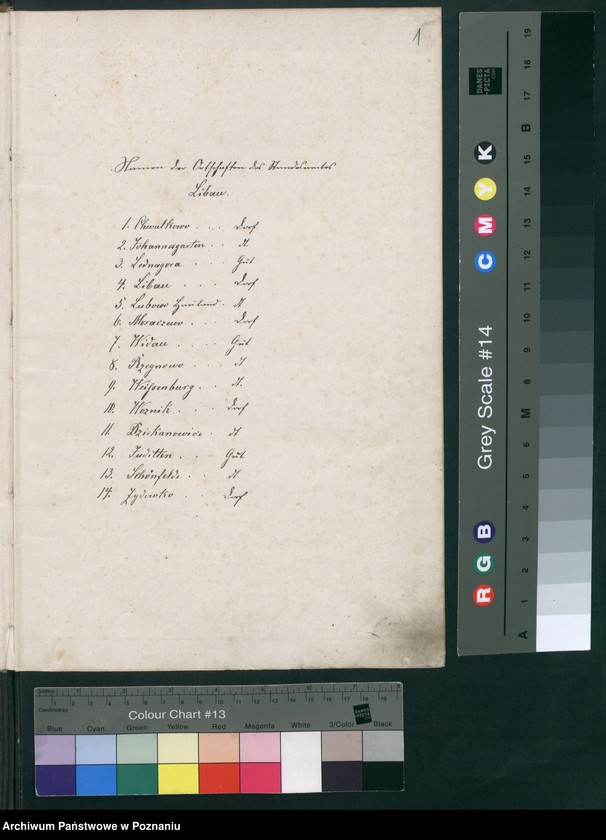 1
Namen der Ortschaften des Standesamtes
Libau.
1. Chwalkowo . . . Dorf
2. Johannesgarten . . dt
3. Lednagora . . . Gut
4. Libau . . . Dorf
5. Lubowo Hauland . dt
6. Moraczewo . . Dorf
7. Widau . . . . Gut
8. Rzegnowo . . dt
9. Weissenburg . . dt.
10. Woznik . . . Dorf
11. Dziekanowice . dt
12. Juditten . . Gut
13. Schönfelde . . dt
14. Zydowko . . Dorf
DANES
-PICTA
.COM
Grey Scale #14
R G B C M Y K
A 1 2 3 4 5 6 M 8 9 10 11 12 13 14 15 B 17 18 19
Inches 1 2 3 4 5 6 7 8
Centimetres 1 2 3 4 5 6 7 8 9 10 11 12 13 14 15 16 17 18 19
Colour Chart #13
DANES
-PICTA
.COM
Blue Cyan Green Yellow Red Magenta White 3/Color Black
Archiwum Państwowe w Poznaniu